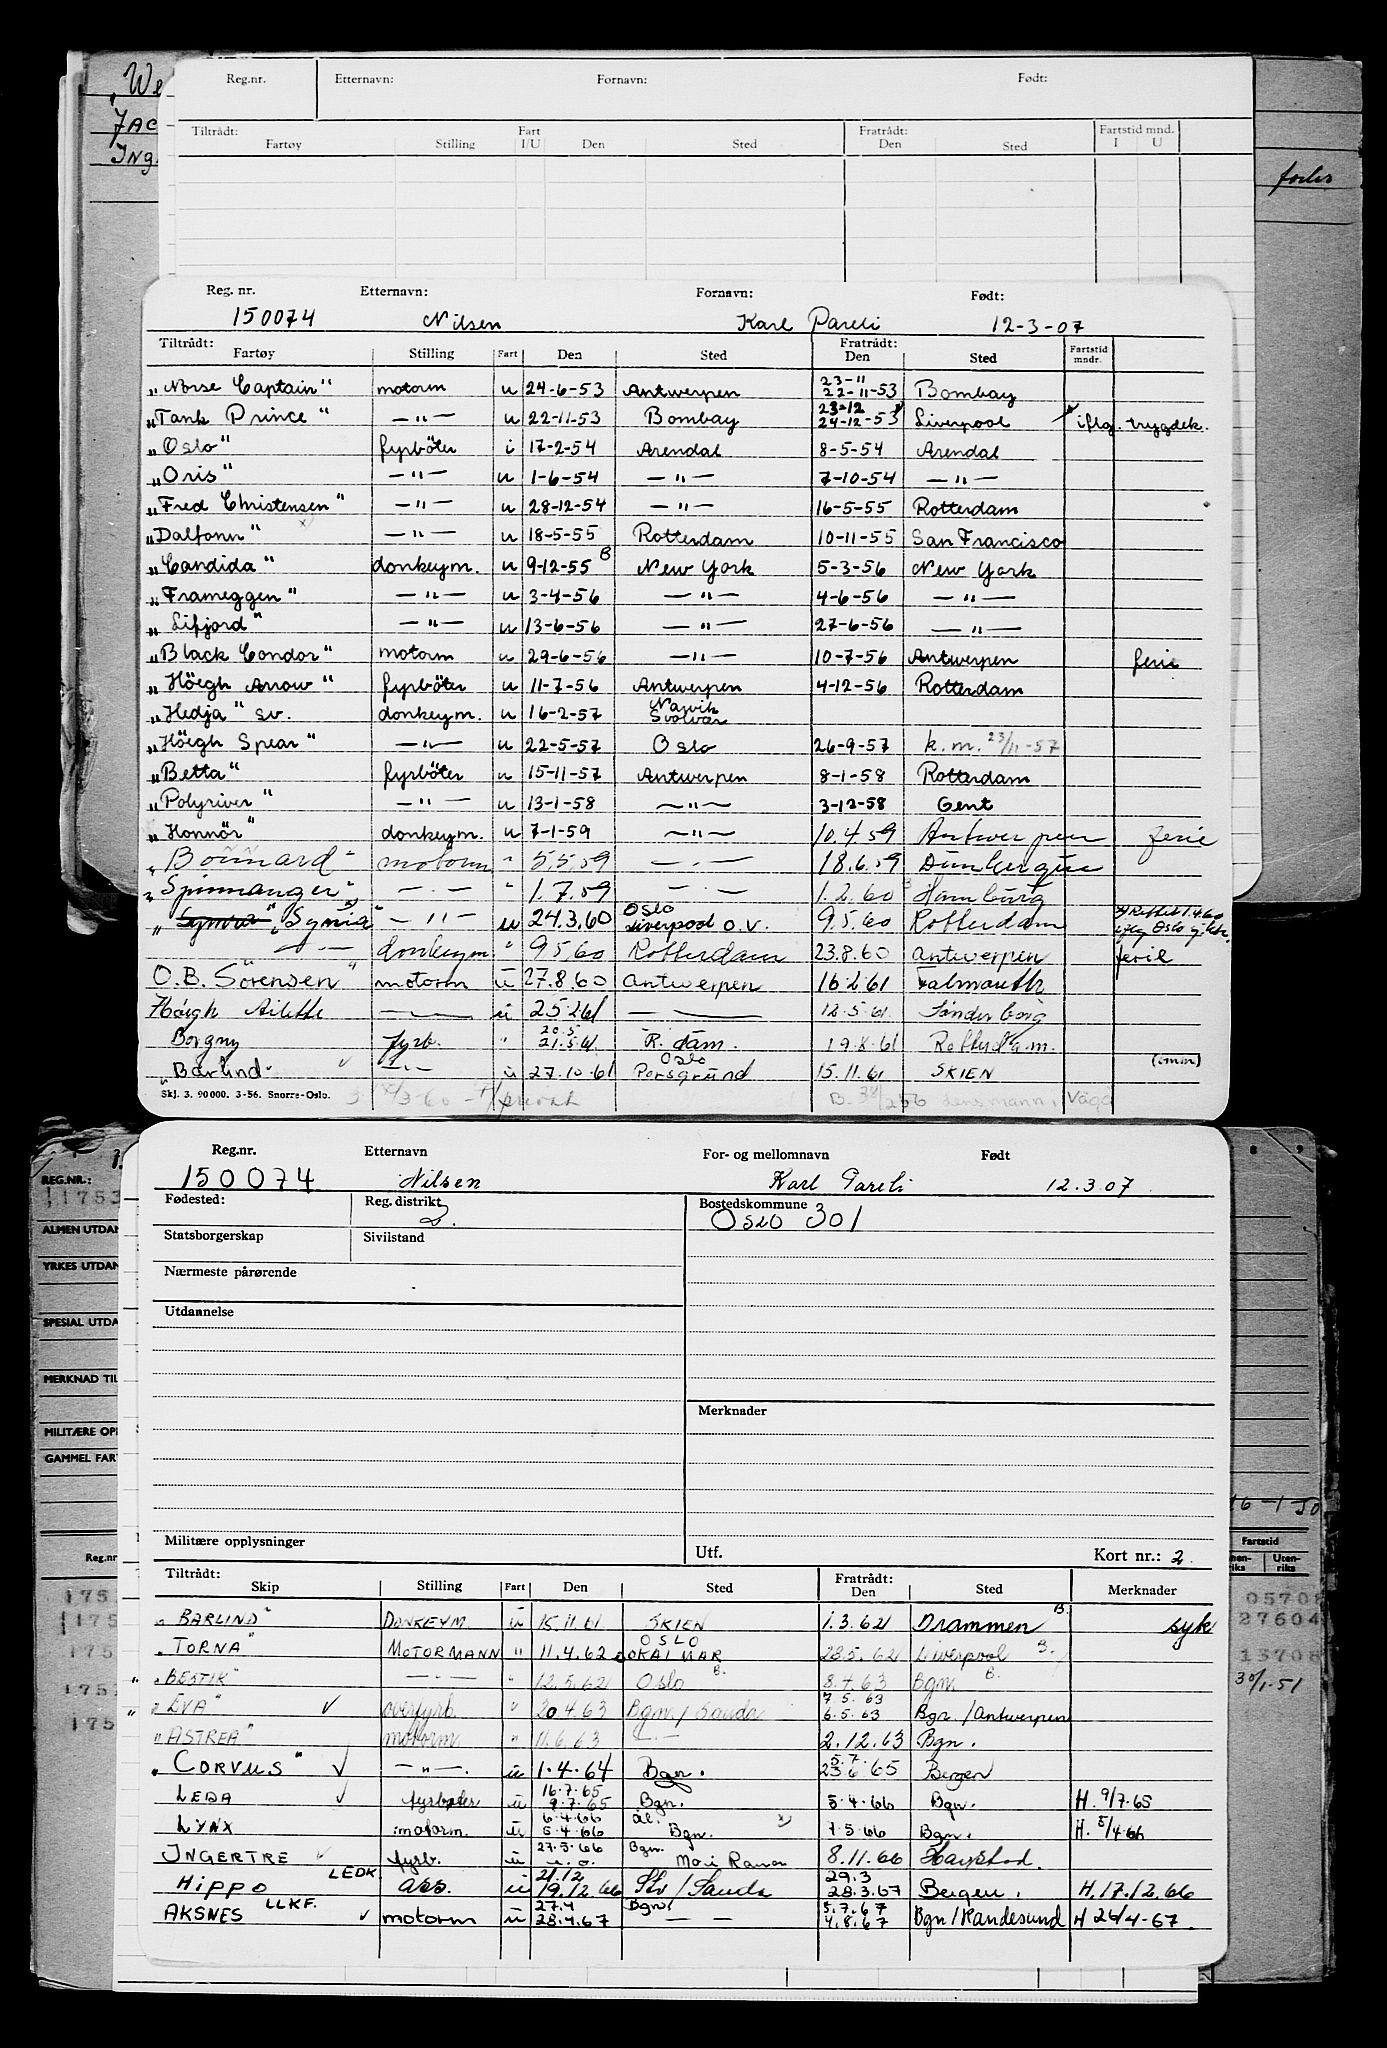 "We
Jac
Ing.
forlis
Reg.nr. Etternavn: Fornavn: Født:
Tiltrådt: Fart Fratrådt: Fartstid mnd.
Fartøy Stilling I/U Den Sted Den Sted I U
Reg. nr. Etternavn: Fornavn: Født:
150074 Nilsen Karl Pareli 12-3-07
Tiltrådt: Fratrådt: Fartstid
Fartøy Stilling Fart Den Sted Den Sted mndr.
23-11
"Norse Captain" motorm u 24-6-53 Antwerpen 22-11-53 Bombay
23-12
"Tank Prince" —"— u 22-11-53 Bombay 24-12-53 Liverpool iflg. trygdek.
"Oslo" fyrböter i 17-2-54 Arendal 8-5-54 Arendal
"Oris" —"— u 1-6-54 —"— 7-10-54 —"—
"Fred Christensen" —"— u 28-12-54 —"— 16-5-55 Rotterdam
"Dalfonn" —"— u 18-5-55 Rotterdam 10-11-55 San Francisco
"Candida" donkeym. u 9-12-55 B New York 5-3-56 New York
"Frameggen" —"— u 3-4-56 —"— 4-6-56 —"—
"Lifjord" —"— u 13-6-56 —"— 27-6-56 —"—
"Black Condor" motorm u 29-6-56 —"— 10-7-56 Antwerpen ferie
"Höegh Arrow" fyrböter u 11-7-56 Antwerpen 4-12-56 Rotterdam
Narvik
"Hedja" sv. donkeym. u 16-2-57 Svolvær
"Höegh Spear" —"— u 22-5-57 Oslo 26-9-57 k.m. 23/11-57
"Betta" fyrböter u 15-11-57 Antwerpen 8-1-58 Rotterdam
"Polyriver" —"— u 13-1-58 —"— 3-12-58 Gent
"Honnör" donkeym. u 7-1-59 —"— 10.4.59 Antwerpen ferie
"Bonnard" motorm " 5.5.59 —.— 18.6.59 Dunkerque
"Spinnanger" —.— " 1.7.59 —.— 1.2.60 B Hamburg
Oslo x) Rettet 1.4.60
"Symra" "Symia" x) —"— u 24.3.60 Liverpool o.v. 9.5.60 Rotterdam iflg Oslo
—"— donkeym " 9.5.60 Rotterdam 23.8.60 Antwerpen ferie
O.B. Sörensen" motorm u 27.8.60 Antwerpen 16.2.61 Falmouth
Höigh Ailette —"— u 25.2.61 —"— 12.5.61 Sönderborg
20.5
Borgny fyrb. " 21.5.61 R.dam. 19.8.61 Rotterdam.
Oslo (omm)
"Barlind" —"— u 27.10.61 Porsgrund 15.11.61 SKIEN
Skj. 3. 90000. 3-56. Snorre-Oslo. privat B. 34/256 Lensmann i Våga
Reg.nr. Etternavn For- og mellomnavn Født
150074 Nilsen Karl Pareli 12.3.07
Fødested: Reg. distrikt 2. Bostedskommune
Oslo 301
Statsborgerskap Sivilstand
Nærmeste pårørende
Utdannelse
Merknader
Militære opplysninger Utf. Kort nr.: 2.
Tiltrådt: Fratrådt:
Skip Stilling Fart Den Sted Den Sted Merknader
"BARLIND" DONKEYM u 15.11.61 SKIEN 1.3.62 Drammen B. syk
OSLO
"TORNA" MOTORMANN " 11.4.62 KALMAR 28.5.62 Liverpool B.
"BESTIK" —"— " 12.5.62 Oslo B. 8.4.63 Bgn. B.
7.5.63
"EVA" overfyrb. " 20.4.63 Bgn./Sauda 6.5.63 Bgn./Antwerpen
"ASTREA" motorm " 11.6.63 —.— 2.12.63 Bgn.
5.7.
"CORVUS" —"—. u 1.4.64 Bgn. 23.6.65 Bergen
16.7.65
LEDA fyrbøter u 9.7.65 Bgn. 5.4.66 Bgn. H. 9/7.65
6.4.66 Ål.
LYNX motorm. u 5.4.66 Bgn. x) 7.5.66 Bgn. H. 5/4.66
27.5.66 Bgn.
INGERTRE fyrb. u u.o. Mo i Rana 8.11.66 Haugstad.
LEDK 21.12 29.3
HIPPO ass. u 19.12.66 Stv/Sauda 28.3.67 Bergen. H. 17.12.66
LLKF. 27.4 Bgn. 5.7.67
AKSNES motorm u 28.4.67 — — 4.8.67 Bgn/Randesund H 26/4-67.
REG.NR.:
1753
ALMEN UTDAN
YRKES UTDAN
SPESIAL UTDA
MERKNAD TIL
MILITÆRE OPP
GAMMEL FAR
Reg.nr
175
175
175
175
175
8 9
16-1-50
Fartstid
nen-
riks
Uten-
riks
05708
27604
13708
30/1-51